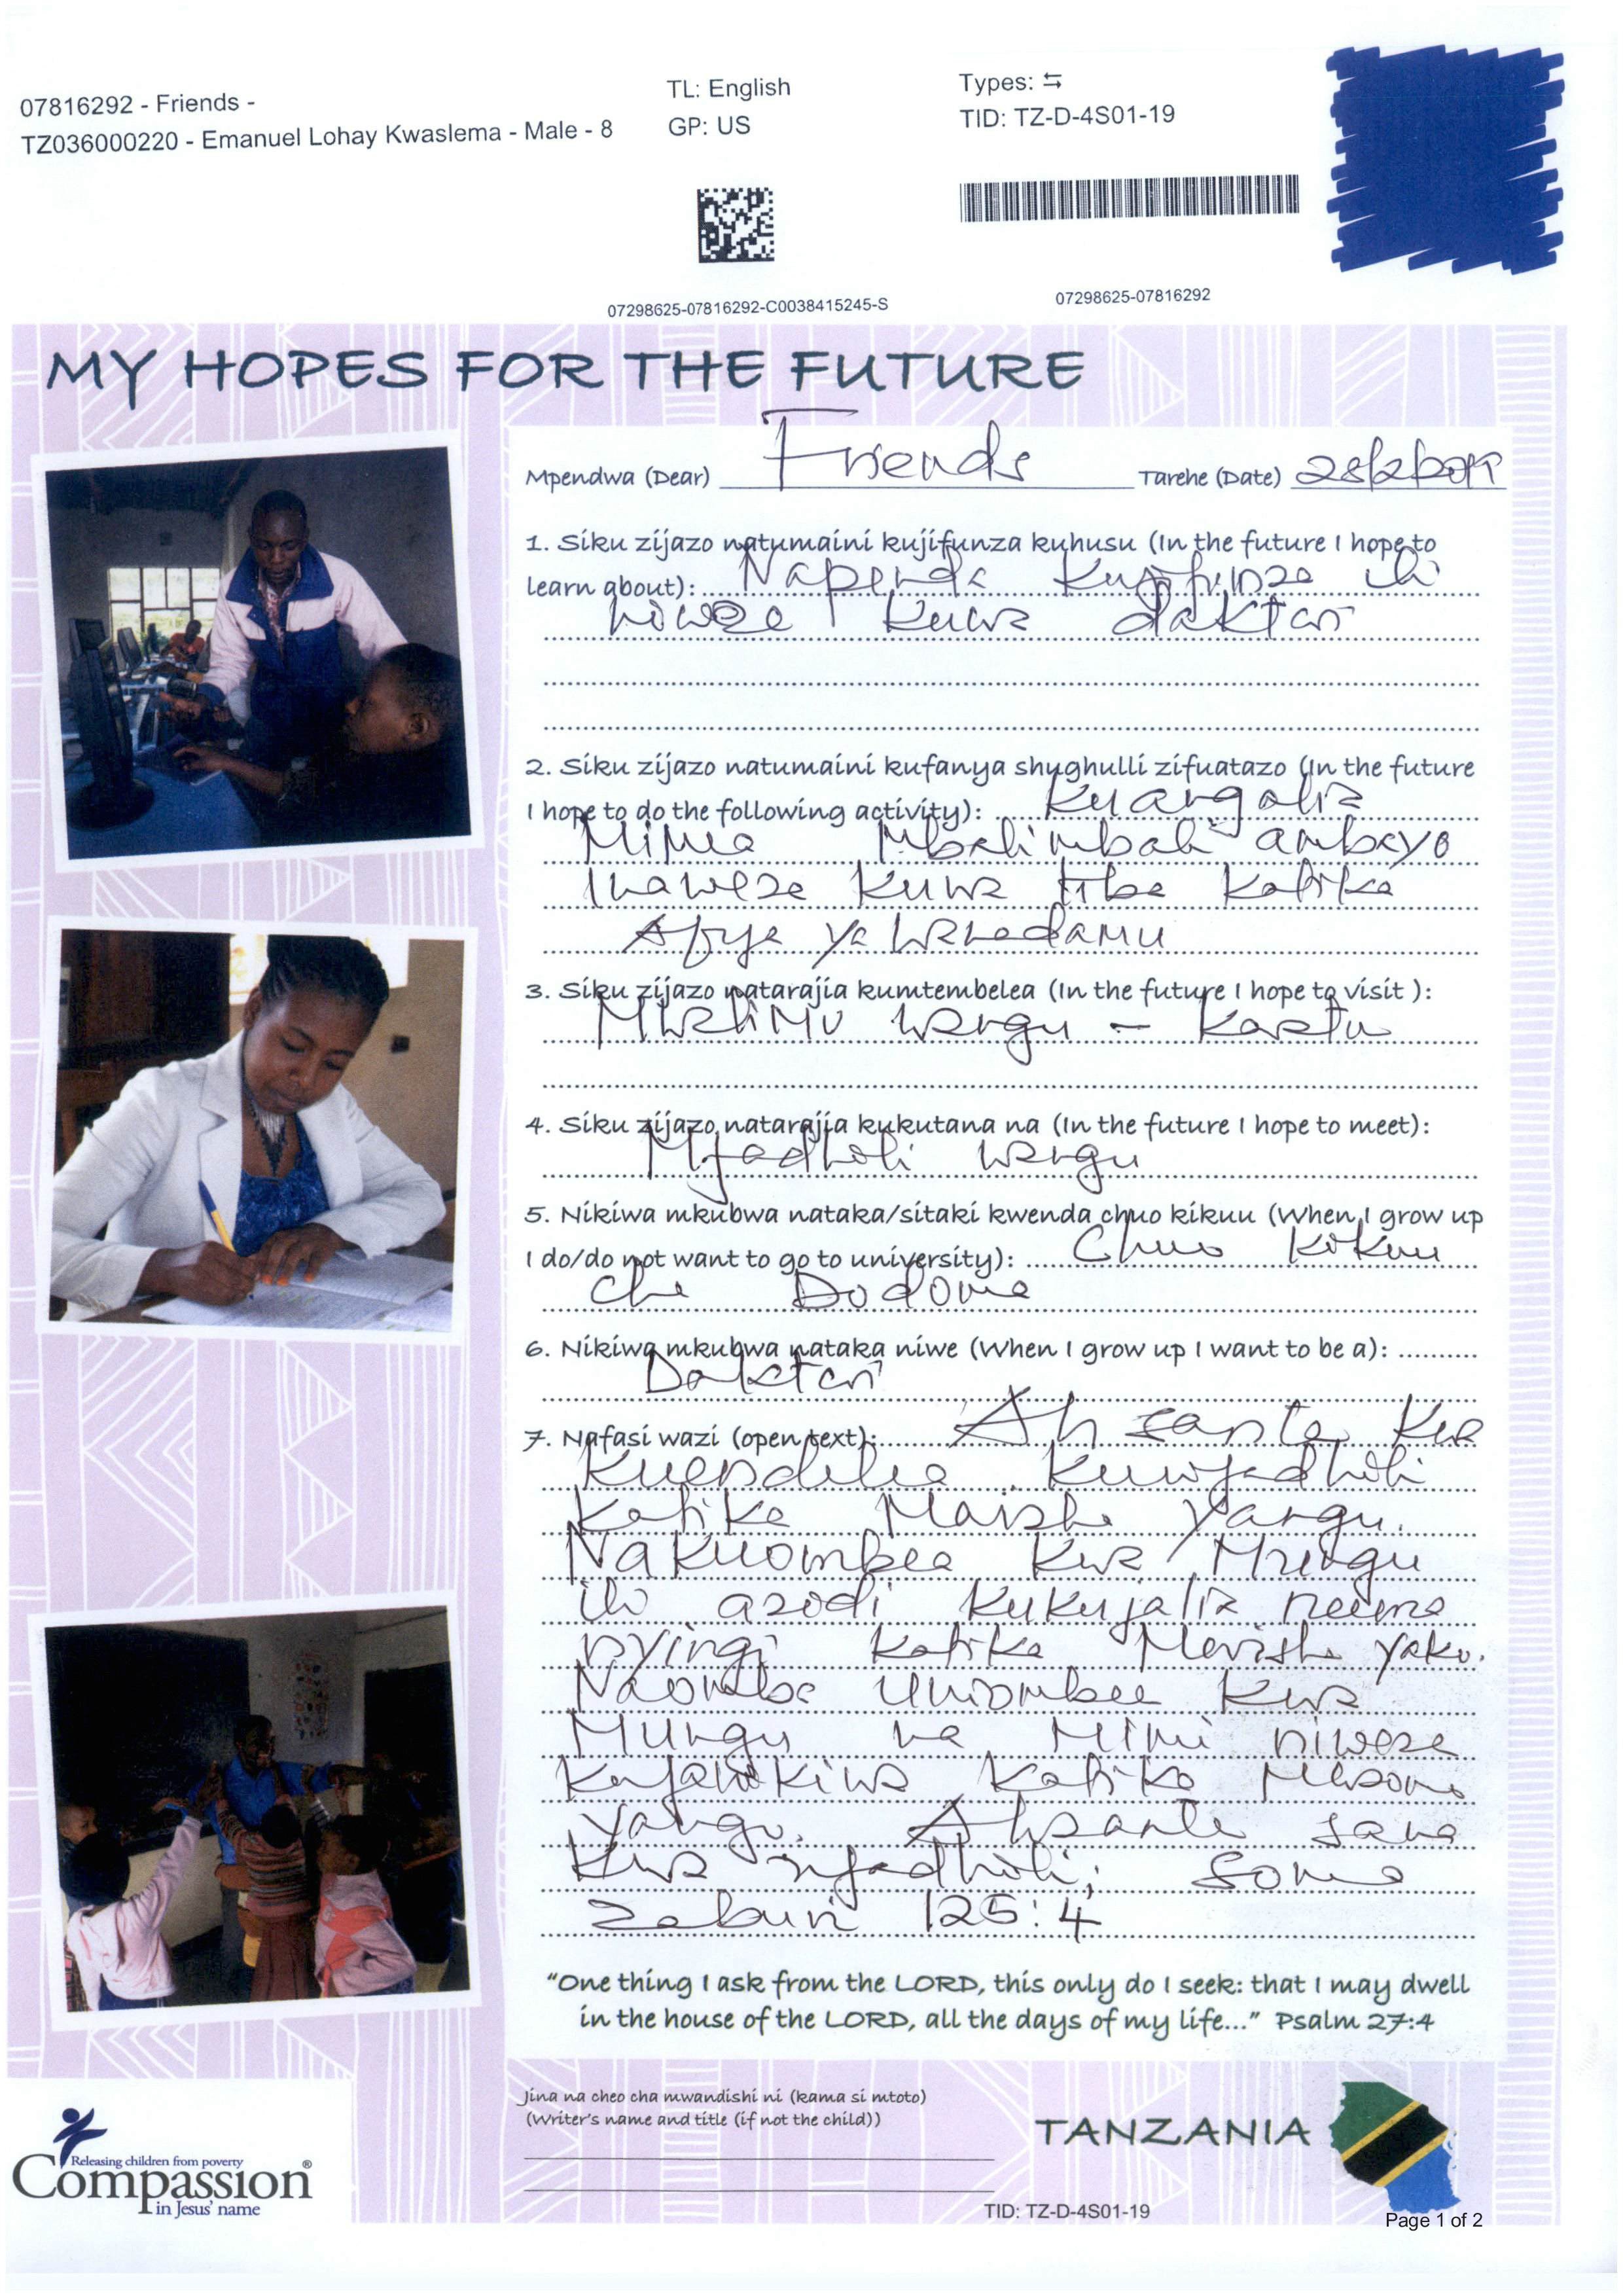 07816292 - Friends -
TZ036000220 - Emanuel Lohay Kwaslema - Male - 8
TL: English
GP: US
Types: ⇆
TID: TZ-D-4S01-19
07298625-07816292-C0038415245-S
07298625-07816292
MY HOPES FOR THE FUTURE
Mpendwa (Dear) Friends Tarehe (Date) 28/2/2019
1. Siku zijazo natumaini kujifunza kuhusu (In the future I hope to
learn about): Napenda kujifunza ili
niweze kuwa daktari
2. Siku zijazo natumaini kufanya shughulli zifuatazo (In the future
I hope to do the following activity): Kuangalia
Mimea Mbalimbali ambayo
Inaweza kuwa tiba katika
Afya ya Wanadamu
3. Siku zijazo natarajia kumtembelea (In the future I hope to visit ):
Mwalimu wangu -
4. Siku zijazo natarajia kukutana na (In the future I hope to meet):
Mfadhili wangu
5. Nikiwa mkubwa nataka/sitaki kwenda chuo kikuu (When I grow up
I do/do not want to go to university): Chuo Kikuu
cha Dodoma
6. Nikiwa mkubwa nataka niwe (When I grow up I want to be a):
Daktari
7. Nafasi wazi (open text): Ahsante kwa
kuendelea kunifadhili
katika Maisha yangu.
Nakuombea kwa Mungu
ili azidi kukujalia neema
nyingi katika Maisha yako.
Naomba uniombee kwa
Mungu na Mimi niweze
katika Masomo
yangu. Ahsante sana
kwa mfadhili; Soma
Zaburi 125:4
“One thing I ask from the LORD, this only do I seek: that I may dwell
in the house of the LORD, all the days of my life...” Psalm 27:4
Jina na cheo cha mwandishi ni (kama si mtoto)
(Writer's name and title (if not the child))
TANZANIA
Releasing children from poverty
Compassion®
in Jesus' name
TID: TZ-D-4S01-19
Page 1 of 2